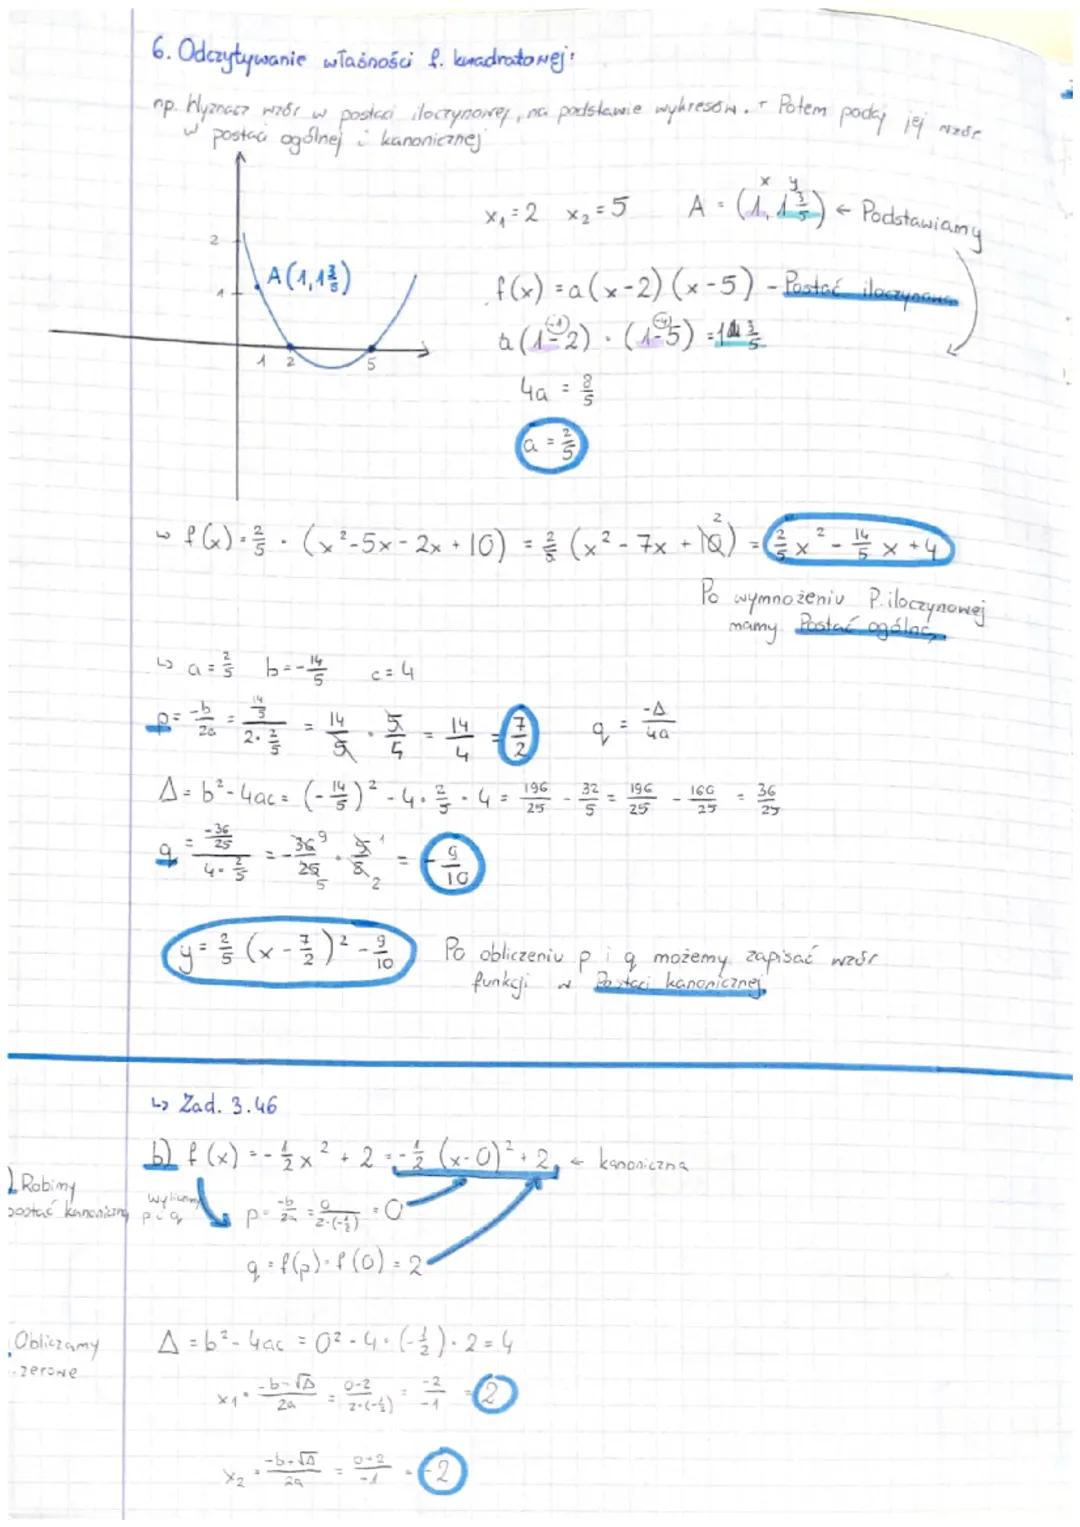 6. Odczytywanie własności f. kwadratowej:
np. Wyznacz wzór w postaci iloczynowej, na podstawie wykresów. Potem podaj jej wzór
w postaci ogólnej i kanonicznej
2
1
A(1,1 3/5)
1 2 5
x₁=2 x₂=5 A = (1, 1 3/5) ← Podstawiamy
x y
f(x) = a(x-2)(x-5) - Postać iloczynowa
a(1-2)·(1-5) = 1 3/5
(-1) (-4)
4a = 8/5
a = 2/5
f(x) = 2/5 · (x²-5x-2x+10) = 2/5 (x²-7x+10) = 2/5x² - 14/5x + 4
2
Po wymnożeniu P. iloczynowej
mamy Postać ogólną
↳ a = 2/5 b = -14/5 c = 4
p = -b/2a = 14/5 / 2·2/5 = 14/5 · 5/4 = 14/4 = 7/2 q = -Δ/4a
Δ = b²-4ac = (-14/5)² - 4·2/5·4 = 196/25 - 32/5 = 196/25 - 160/25 = 36/25
q = -36/25 / 4·2/5 = -36/25 · 5/8 = -9/10
9 1
5 2
y = 2/5 (x - 7/2)² - 9/10 Po obliczeniu p i q możemy zapisać wzór
funkcji w Postaci kanonicznej
↳ Zad. 3.46
b) f(x) = -1/2x² + 2 = -1/2 (x-0)² + 2 ← kanoniczna
Robimy
postać kanoniczną
wyliczmy
p i q
p = -b/2a = 0/2·(-1/2) = 0
q = f(p) = f(0) = 2
Obliczamy
zerowe
Δ = b²-4ac = 0² - 4·(-1/2)·2 = 4
x₁ = -b-√Δ/2a = 0-2/2·(-1/2) = -2/-1 = 2
x₂ = -b+√Δ/2a = 0+2/-1 = -2